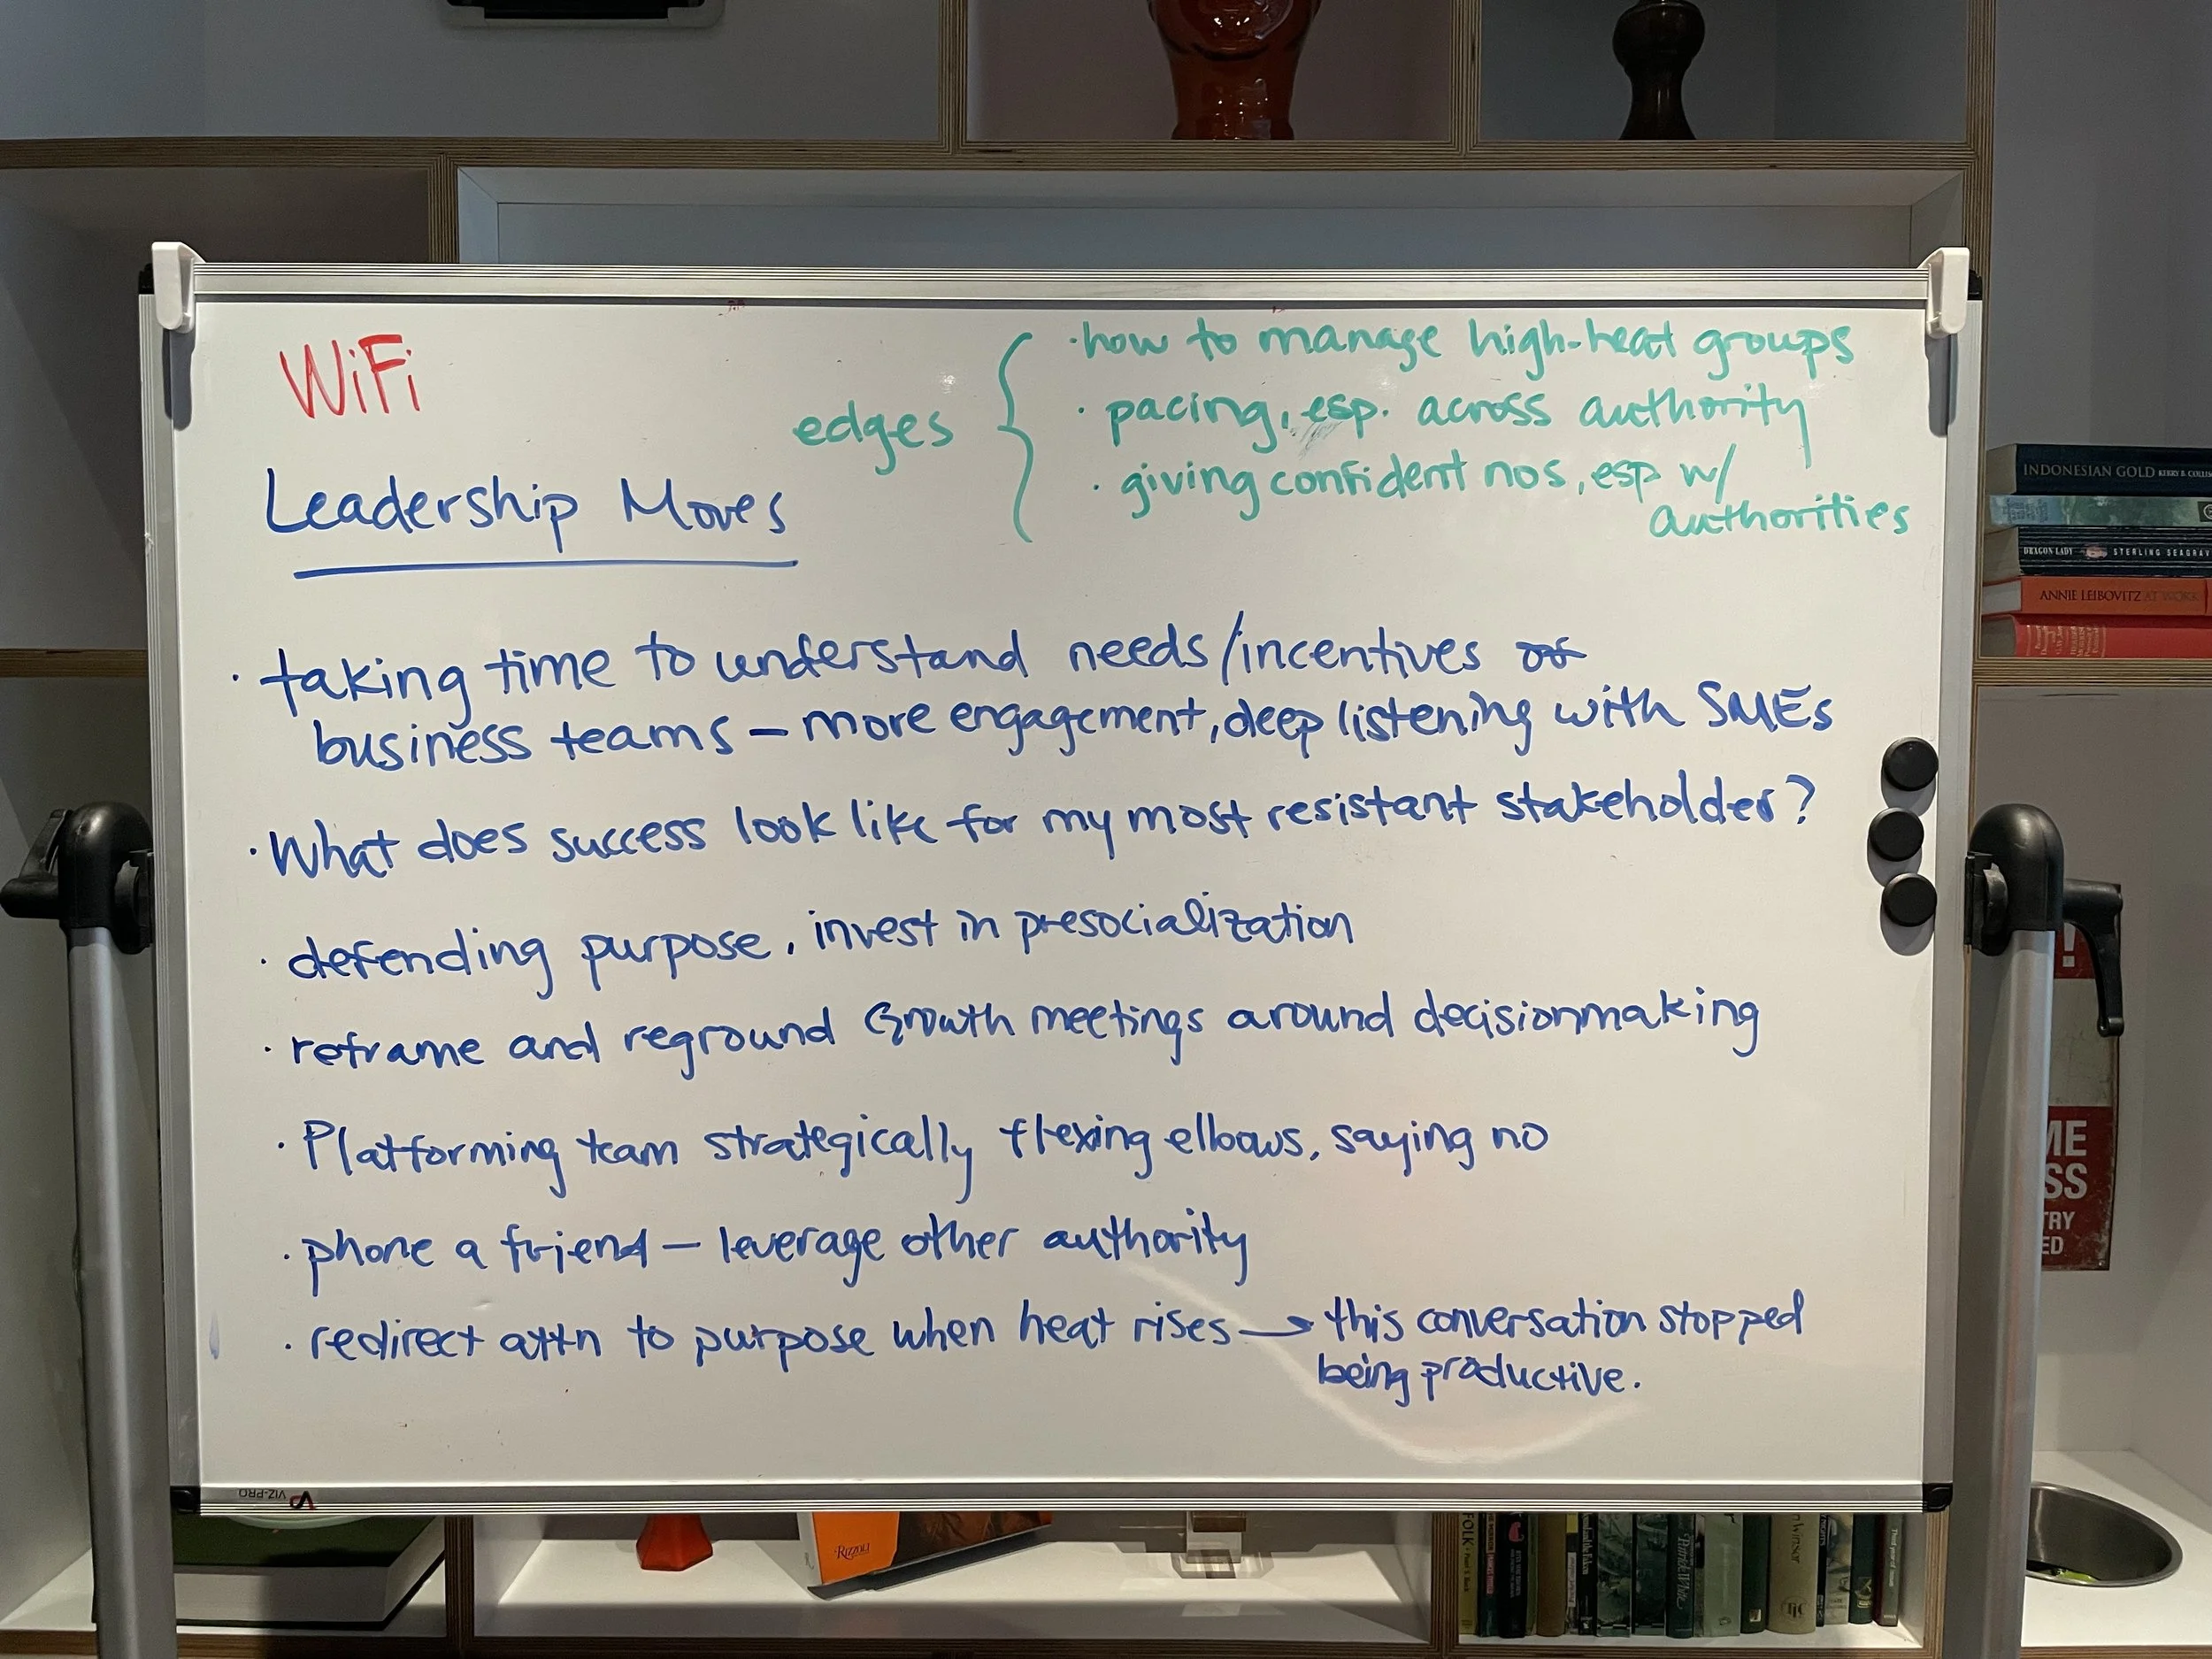 WiFi
edges
· how to manage high-heat groups
· pacing, esp. across authority
· giving confident nos, esp w/
authorities
Leadership Moves
· taking time to understand needs/incentives of
business teams – more engagement, deep listening with SMEs
· What does success look like for my most resistant stakeholder?
· defending purpose, invest in presocialization
· reframe and reground Growth meetings around decisionmaking
· Platforming team strategically flexing elbows, saying no
· phone a friend – leverage other authority
· redirect attn to purpose when heat rises → this conversation stopped
being productive.
VIZ-PRO
INDONESIAN GOLD
DRAGON LADY STERLING SEAGRAV
ANNIE LEIBOVITZ AT WORK
!
ME
SS
TRY
ED
RIZZOLI
FOLK
Patrick White